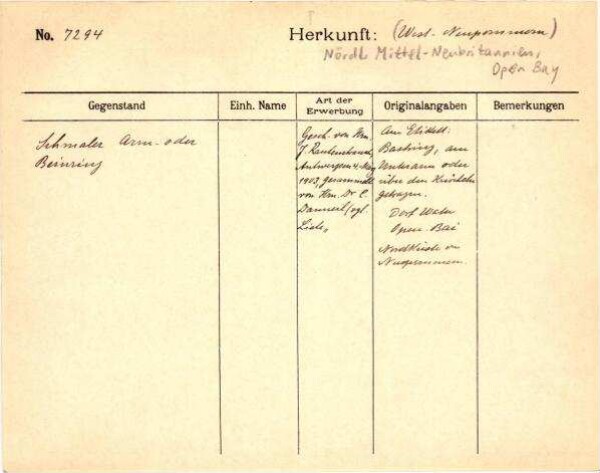 No. 7294 Herkunft: (West-Neupommern)
Nördl Mittel-Neubritannien,
Open Bay
Gegenstand Einh. Name Art der Erwerbung Originalangaben Bemerkungen
Schmaler Arm- oder
Beinring
Gesch. von Hrn.
Antwerpen 4. May
1903, gesammelt
von Hrn. Dr. E.
vgl.
Liste,
Am Etikett:
Bastring, am
Unterarm oder
über den Knöcheln
getragen.
Dorf
Open Bai
Nordküste v
Neupommern.